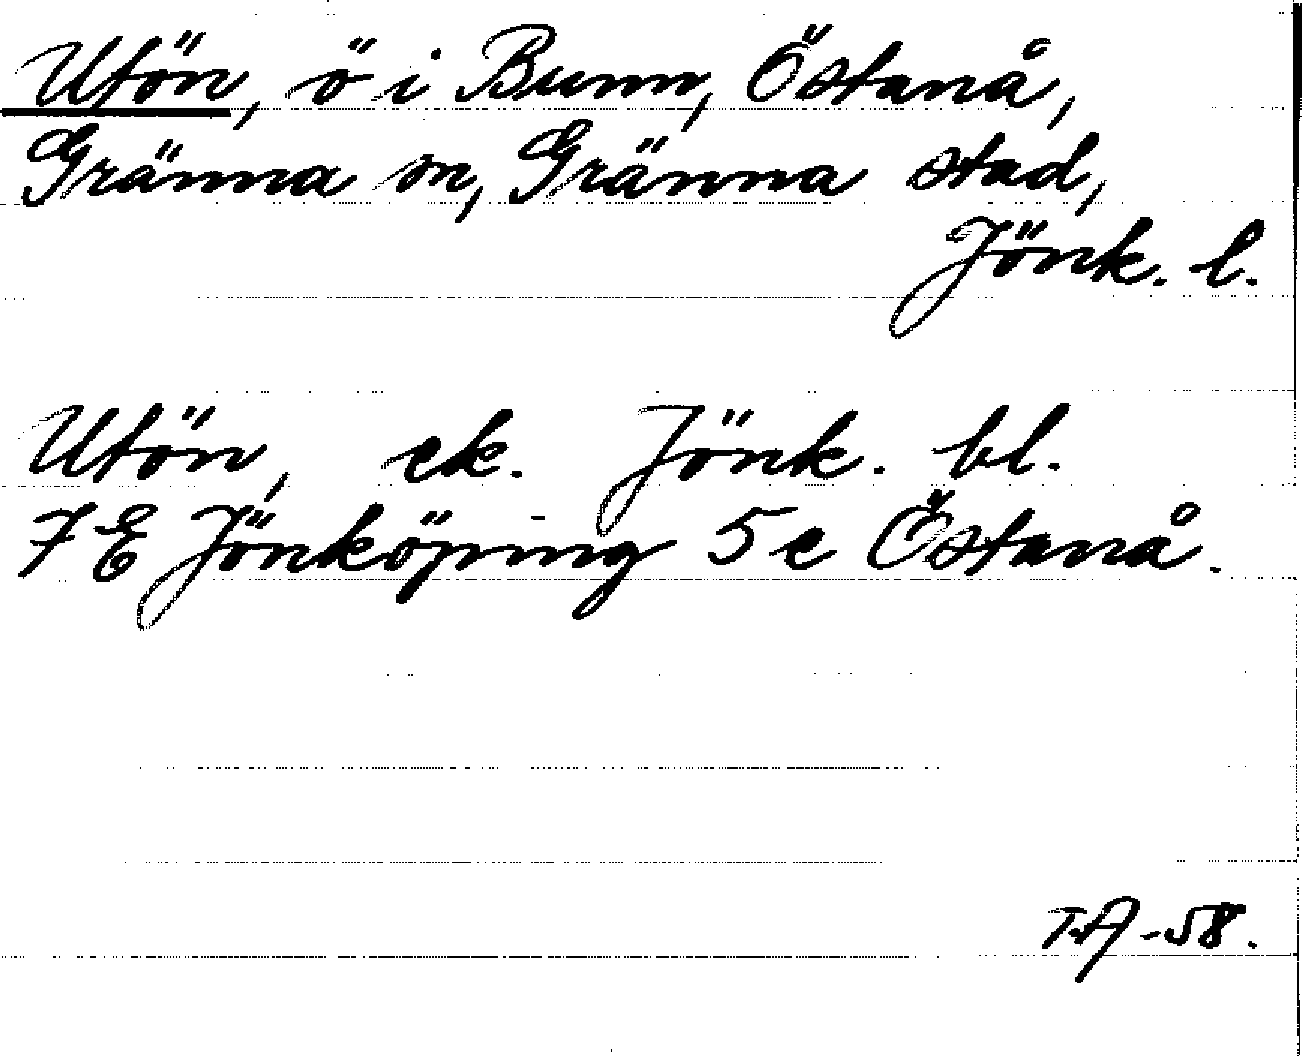 Utön, ö i Bunn, Östanå,
Gränna sn, Gränna stad,
Jönk. l.
Utön, ek. Jönk. bl.
7 E Jönköping 5 e Östanå.
T.A -58.